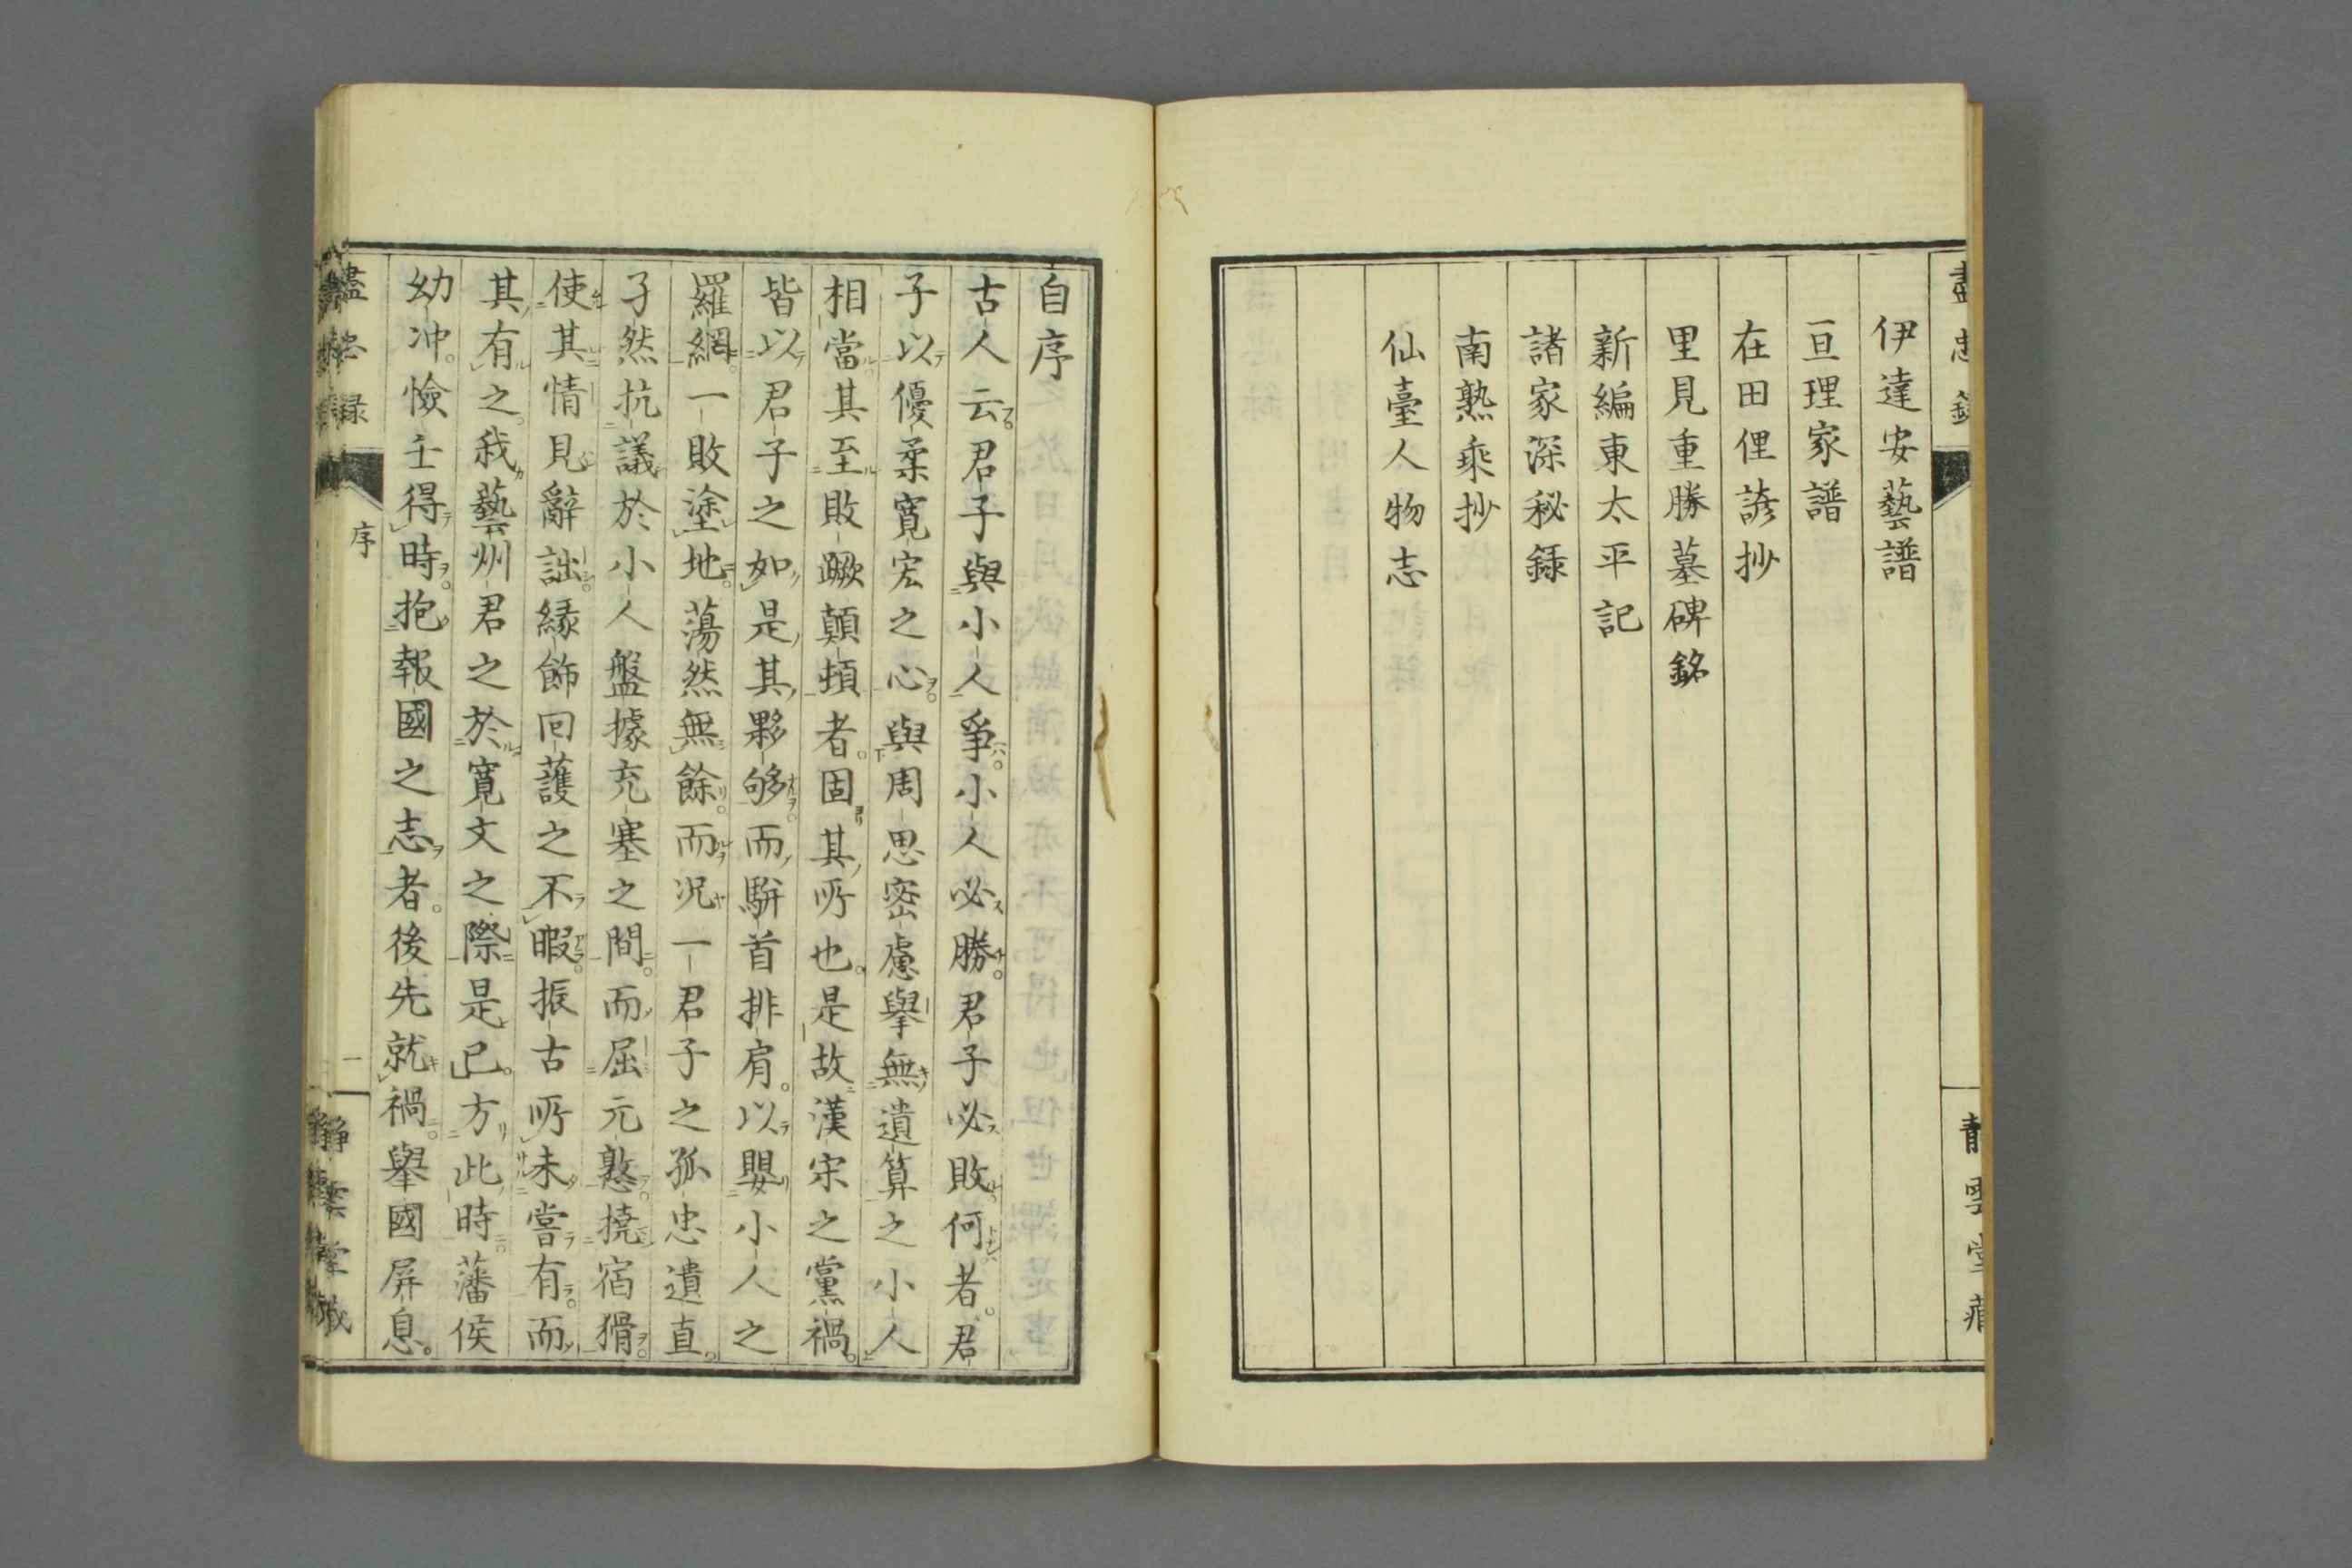 盡忠錄
伊達安藝譜
亘理家譜
在田俚諺抄
里見重勝墓碑銘
新編東太平記
諸家深秘録
南熟乘抄
仙臺人物志
靜雲堂藏
自序
古人云。君子與小人爭。小人必勝。君子必敗。何者。君
子以優柔寛宏之心。與周思密慮擧無遺算之小人
相當。其至敗蹶顛頓者。固其所也。是故漢宋之黨禍。
皆以君子之如是其夥够而駢首排肩。以嬰小人之
羅網。一敗塗地。蕩然無餘。而况一君子之孤忠遺直。
孑然抗議於小人盤據充塞之間。而屈元憝撓宿猾。
使其情見辭詘。縁飾回護之不暇。振古所未嘗有。而
其有之。我藝州君之於寛文之際是已。方此時。藩侯
幼冲。憸壬得時。抱報國之志者。後先就禍。擧國屏息。
盡忠録
序
一
靜雲堂藏